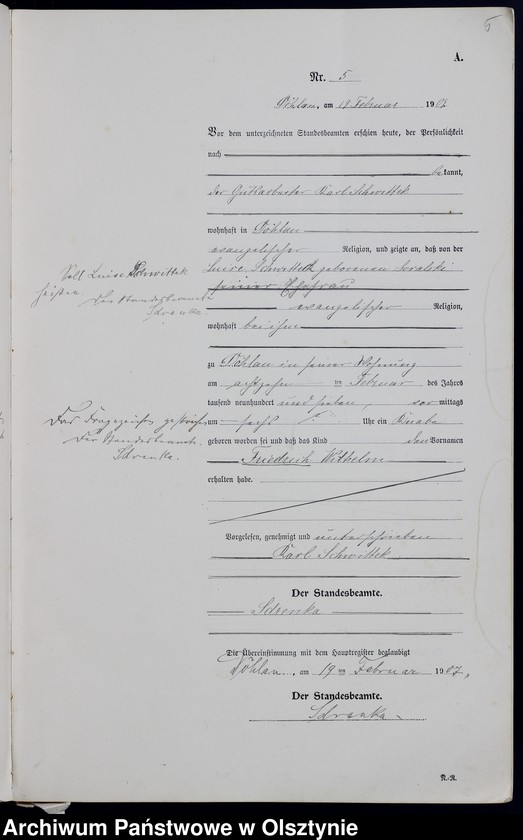 5
A.
Nr. 5
Döhlau, am 19 Februar 1907
Vor dem unterzeichneten Standesbeamten erschien heute, der Persönlichkeit
nach
bekannt,
der Gutsarbeiter Karl Schwittek
wohnhaft in Döhlau
evangelischer Religion, und zeigte an, daß von der
Luise Schwittek geborenen
seiner Ehefrau
evangelischer Religion,
wohnhaft bei ihm
zu Döhlau in seiner Wohnung
am achtzehn ten Februar des Jahres
tausend neunhundert und sieben, vor mittags
um sechs Uhr ein Knabe
geboren worden sei und daß das Kind den Vornamen
Friedrich Wilhelm
erhalten habe.
Vorgelesen, genehmigt und unterschrieben
Karl Schwittek
Der Standesbeamte.
Sdrenka
Soll Luise Schwittek
heißen
Der Standesbeamte
Sdrenka
Das Fragezeichen gestrichen
Der Standesbeamte.
Sdrenka.
Die Übereinstimmung mit dem Hauptregister beglaubigt
Döhlau, am 19 ten Februar 1907,
Der Standesbeamte.
Sdrenka
N.-R.
Archiwum Państwowe w Olsztynie